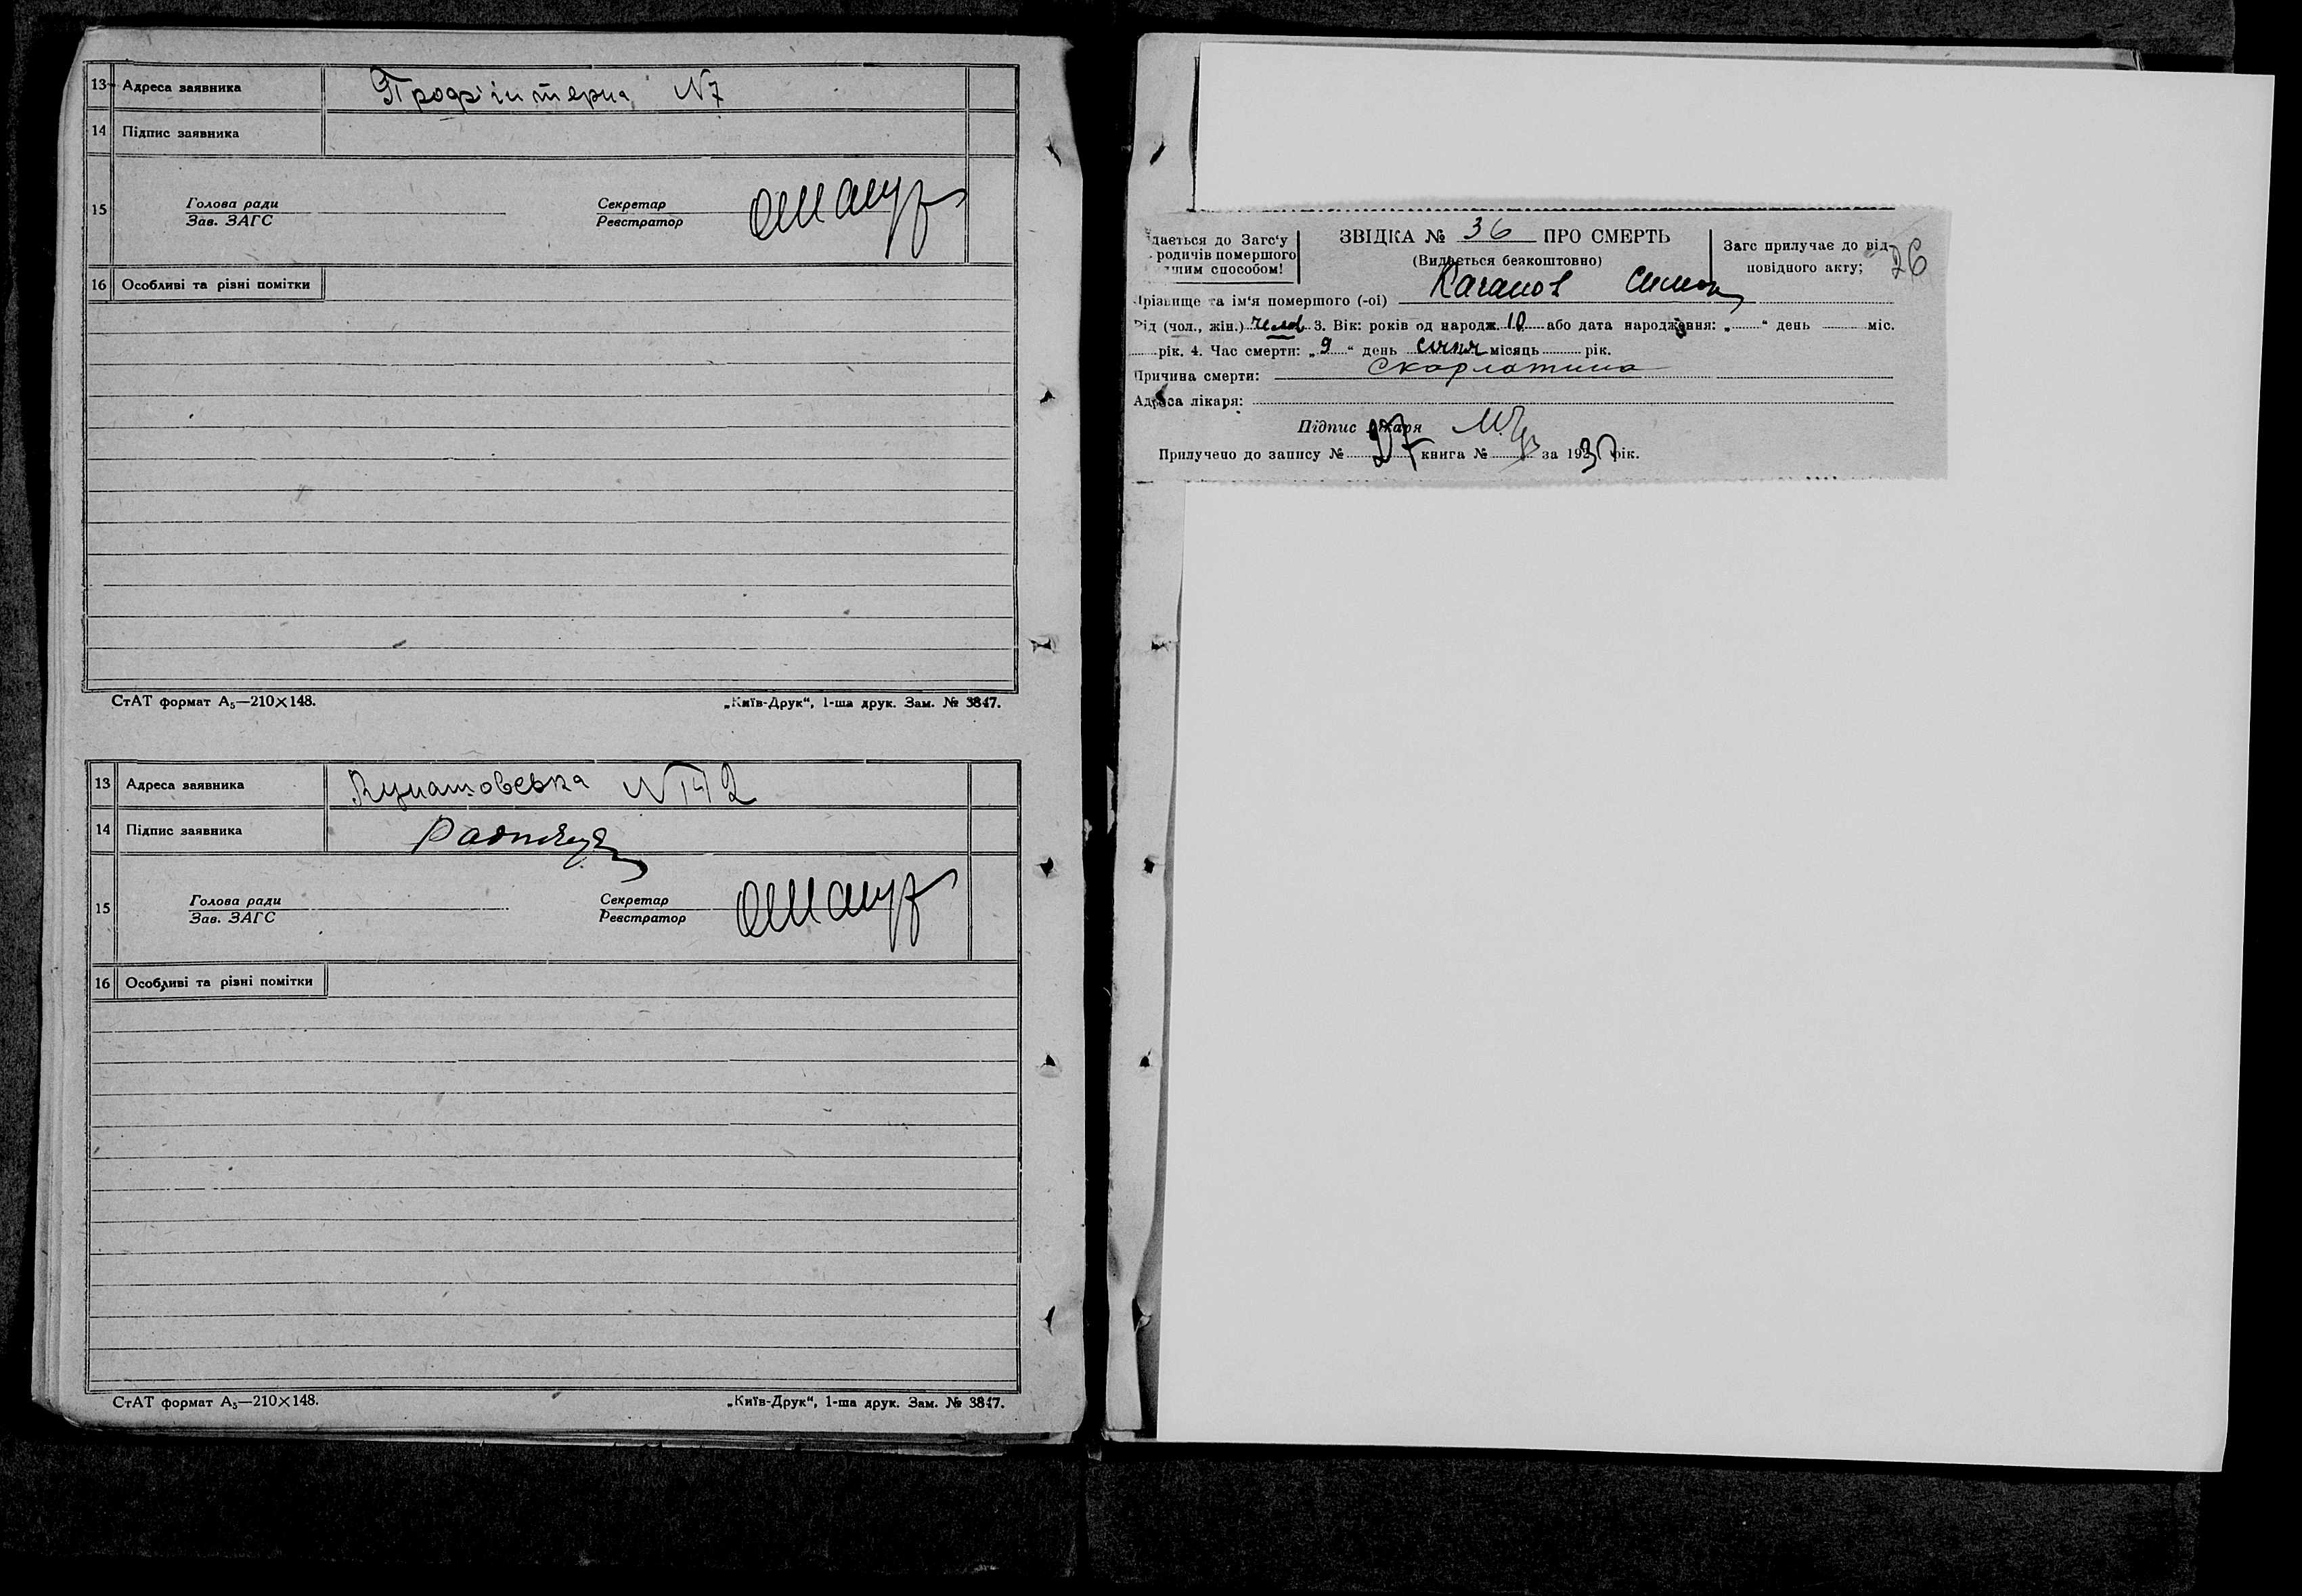 13 Адреса заявника Профінтерна N7
14 Підпис заявника
15 Голова ради
Зав. ЗАГС
Секретар
Реєстратор
16 Особливі та різні помітки
СтАТ формат А₅—210×148.
„Київ-Друк“, 1-ша друк. Зам. № 3847.
13 Адреса заявника N 142
14 Підпис заявника
15 Голова ради
Зав. ЗАГС
Секретар
Реєстратор
16 Особливі та різні помітки
СтАТ формат А₅—210×148.
„Київ-Друк“, 1-ша друк. Зам. № 3847.
дається до Загс'у
родичів помершого
шим способом!
ЗВІДКА № 36 ПРО СМЕРТЬ
(Видається безкоштовно)
Загс прилучає до від-
повідного акту;
26
різвище та ім'я помершого (-ої) Каганов
ід (чол., жін.) 3. Вік: років од народж. 10 або дата народження: „ “ день міс.
рік. 4. Час смерти: „9“ день січня місяць рік.
Причина смерти: Скарлатина
Адреса лікаря:
Підпис лікаря
Прилучено до запису № 27 книга № за 1930 рік.